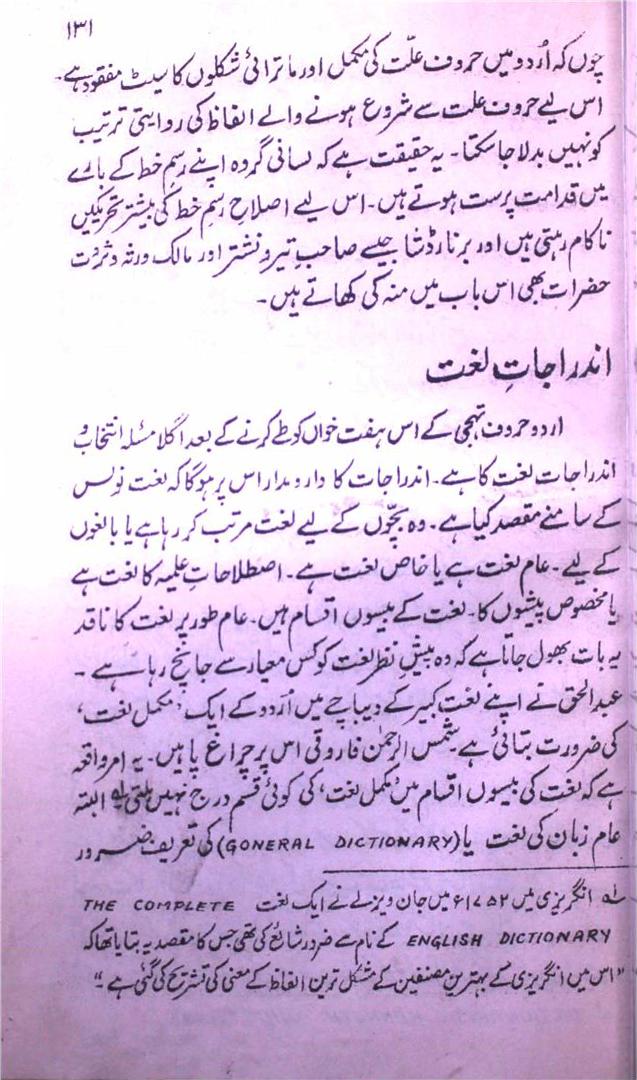 ۱۳۱
چوں کہ اُردو میں حروف علّت کی مکمل اور ماترائی شکلوں کا سیٹ مفقود ہے۔
اس لیے حروف علت سے شروع ہونے والے الفاظ کی روایتی ترتیب
کو نہیں بدلا جا سکتا۔ یہ حقیقت ہے کہ لسانی گروہ اپنے رسم خط کے بارے
میں قدامت پرست ہوتے ہیں۔ اس لیے اصلاحِ رسمِ خط کی بیشتر تحریکیں
ناکام رہتی ہیں اور برنارڈ شا جیسے صاحبِ تیر و نشتر اور مالک ورثہ و ثروت
حضرات بھی اس باب میں منہ کی کھاتے ہیں۔
اندراجاتِ لغت
اردو حروف تہجی کے اس ہفت خواں کو طے کرنے کے بعد اگلا مسئلہ انتخاب و
اندراجات لغت کا ہے۔ اندراجات کا دارومدار اس پر ہوگا کہ لغت نویس
کے سامنے مقصد کیا ہے۔ وہ بچّوں کے لیے لغت مرتب کر رہا ہے یا بالغوں
کے لیے۔ عام لغت ہے یا خاص لغت ہے۔ اصطلاحاتِ علمیہ کا لغت ہے
یا مخصوص پیشوں کا۔ لغت کے بیسوں اقسام ہیں۔ عام طور پر لغت کا ناقد
یہ بات بھول جاتا ہے کہ وہ پیشِ نظر لغت کو کس معیار سے جانچ رہا ہے۔
عبدالحق نے اپنے لغتِ کبیر کے دیباچے میں اُردو کے ایک ’مکمل لغت‘
کی ضرورت بتائی ہے۔ شمس الرحمٰن فاروقی اس پر چراغ پا ہیں۔ یہ امر واقعہ
ہے کہ لغت کی بیسوں اقسام میں ’مکمل لغت‘ کی کوئی قسم درج نہیں ملتی لہ البتہ
عام زبان کی لغت یا (GONERAL DICTIONARY) کی تعریف ضرور
لہ انگریزی میں ۱۷۵۲ء میں جان ویزلے نے ایک لغت THE COMPLETE
ENGLISH DICTIONARY کے نام سے ضرور شائع کی تھی جس کا مقصد یہ بتایا تھا کہ
"اس میں انگریزی کے بہترین مصنفین کے مشکل ترین الفاظ کے معنی کی تشریح کی گئی ہے"